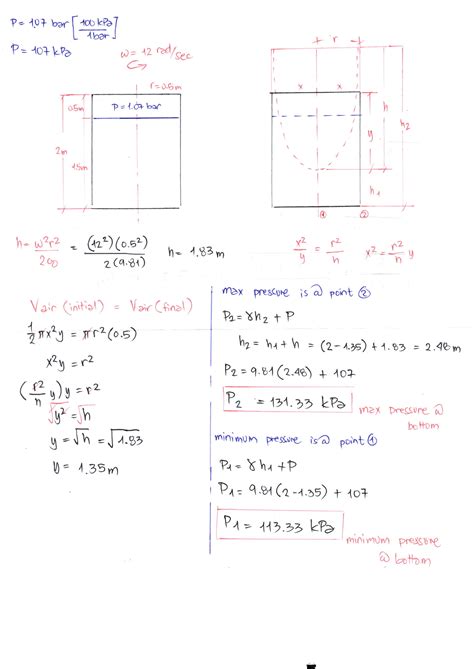 P = 1.07 bar [100 kPa / 1 bar]
P = 107 kPa
ω = 12 rad/sec
r = 0.5m
0.5m
P = 1.07 bar
2m
1.5m
r
x x
h
y
h2
h1
① ②
h = ω²r² / 2g = (12²)(0.5²) / 2(9.81) h = 1.83 m
x²/y = r²/h x² = r²/h y
Vair (initial) = Vair (final)
1/2 πx²y = πr²(0.5)
x²y = r²
(r²/h y) y = r²
√y² = √h
y = √h = √1.83
y = 1.35m
max pressure is @ point ②
P2 = γh2 + P
h2 = h1 + h = (2-1.35) + 1.83 = 2.48 m
P2 = 9.81 (2.48) + 107
P2 = 131.33 kPa
max pressure @ bottom
minimum pressure is @ point ①
P1 = γh1 + P
P1 = 9.81 (2-1.35) + 107
P1 = 113.33 kPa
minimum pressure
@ bottom